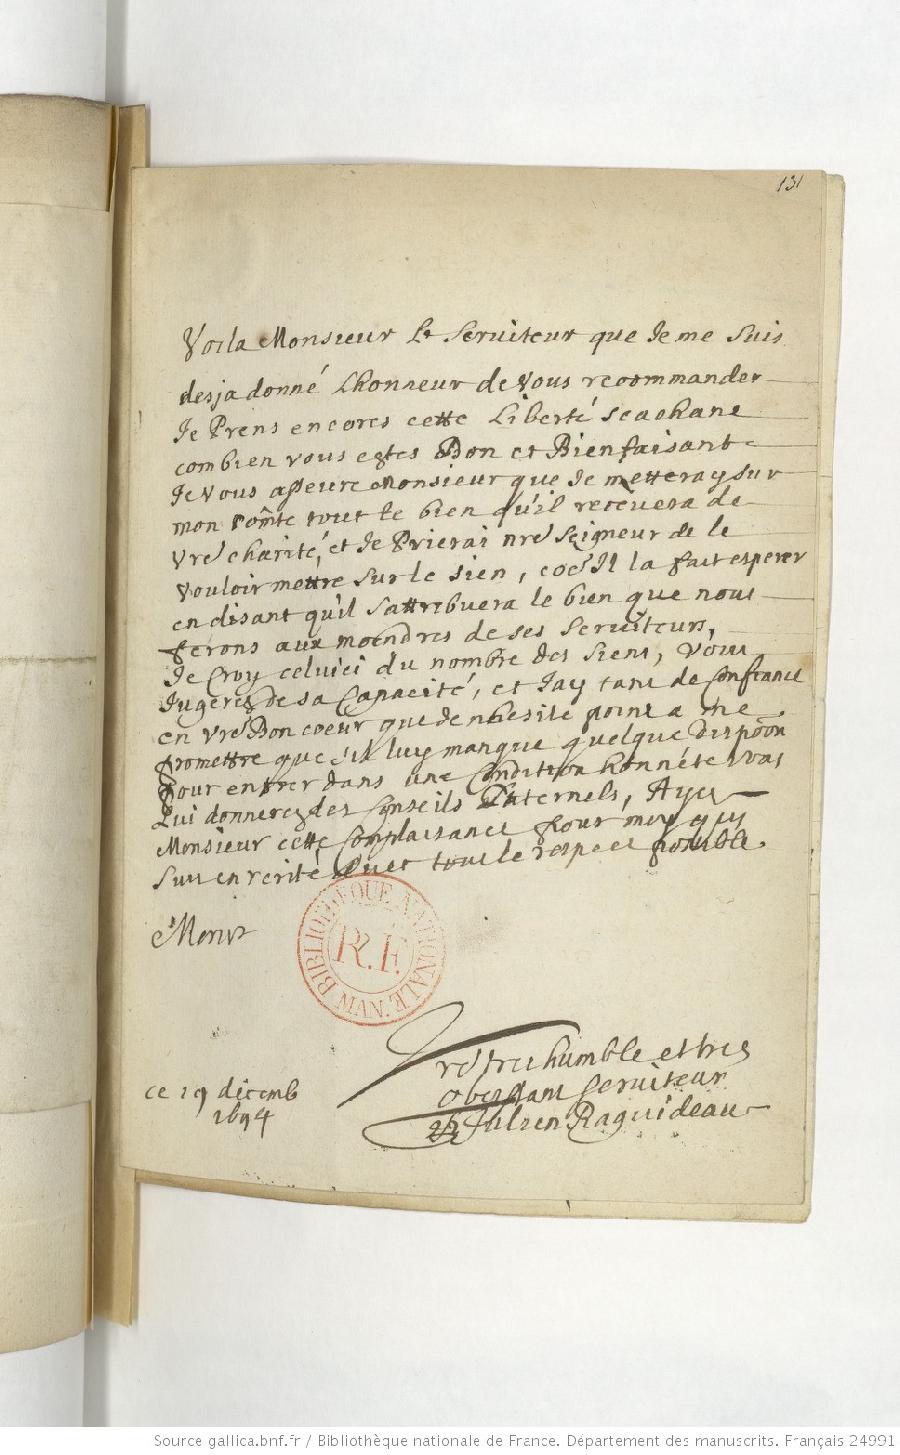 131
Voila Monsieur Le Seruiteur que Je me suis
desja donné Lhonneur de vous recommander
Je Prens encores cette Liberté scachant
combien vous estes Bon et Bienfaisant
Je vous asseure Monsieur que Je metteray sur
mon cõmte tout le bien qu'il receuera de
vre charité, et Je Prierai nre Seigneur de le
vouloir mettre sur le sien, coẽ Il la fait esperer
en disant qu'il sattribuera le bien que nous
ferons aux moindres de ses Seruiteurs,
Je Croy celuici du nombre des siens, vous
Jugeres de sa Capacité, et Jay tant de Confiance
en vre Bon coeur que Je nhesite point a me
promettre que sil luy manque quelque dispõon
pour entrer dans une Condition honnéte vous
Lui donneres des Conseils Paternels, Ayes
Monsieur cette Complaisance pour moy qui
suis en verité avec tout le respect possible.
Monsr
BIBLIOTHEQUE NATIONALE. MAN
R.F.
vre tres humble et tres
obeissant seruiteur
Julien Raguideau
ce 19 decemb
1694
Source gallica.bnf.fr / Bibliothèque nationale de France. Département des manuscrits. Français 24991